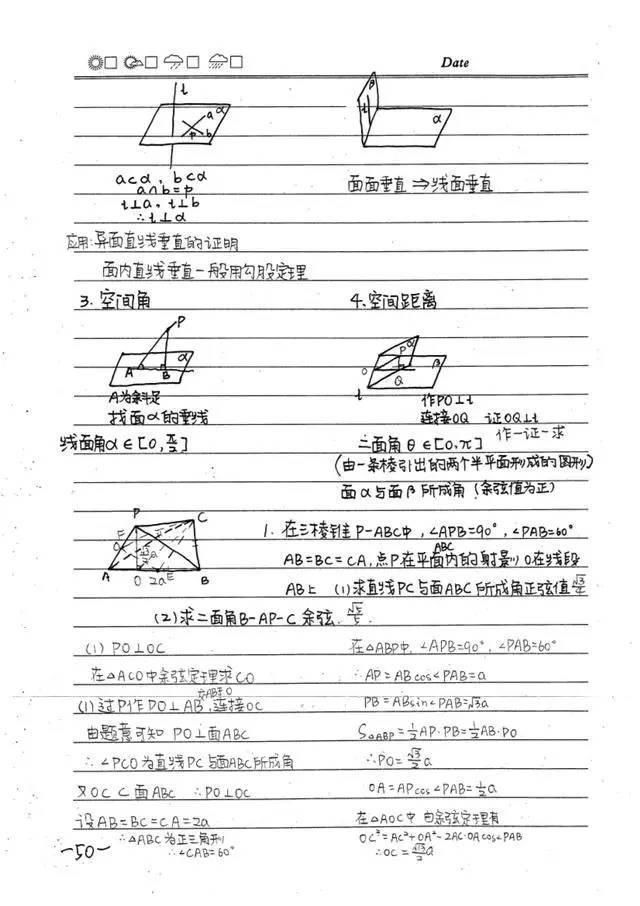 Date
t
α
a
p
b
β
t
α
a⊂α, b⊂α
a∩b=p
t⊥a, t⊥b
∴t⊥α
面面垂直 ⇒ 线面垂直
应用:异面直线垂直的证明
面内直线垂直一般用勾股定理
3. 空间角
4. 空间距离
P
α
A
B
α
P
β
O
Q
t
A为斜足
找面α的垂线
线面角α∈[0, π/2]
作PO⊥t
连接OQ 证OQ⊥t
二面角θ∈[0,π] 作一证一求
(由一条棱引出的两个半平面形成的图形)
面α与面β所成角 (余弦值为正)
P
C
F
A
O
2a
E
B
1. 在三棱锥P-ABC中, ∠APB=90°, ∠PAB=60°
AB=BC=CA, 点P在平面ABC内的射影O在线段
AB上 (1)求直线PC与面ABC所成角正弦值
(2)求二面角B-AP-C余弦. √5/5.
(1) PO⊥OC
在△ACO中余弦定理求CO
(1)过P作PO⊥AB交AB于O, 连接OC
由题意可知 PO⊥面ABC
∴∠PCO为直线PC与面ABC所成角
又OC⊂面ABC ∴PO⊥OC
设AB=BC=CA=2a
∴△ABC为正三角形
∴∠CAB=60°
在△ABP中, ∠APB=90°, ∠PAB=60°
∴AP=ABcos∠PAB=a
PB=ABsin∠PAB=√3a
S△ABP=½AP·PB=½AB·PO
∴PO=√3/2 a
OA=APcos∠PAB=½a
在△AOC中 由余弦定理有
OC²=AC²+OA²-2AC·OAcos∠PAB
∴OC=√13/2 a
-50-